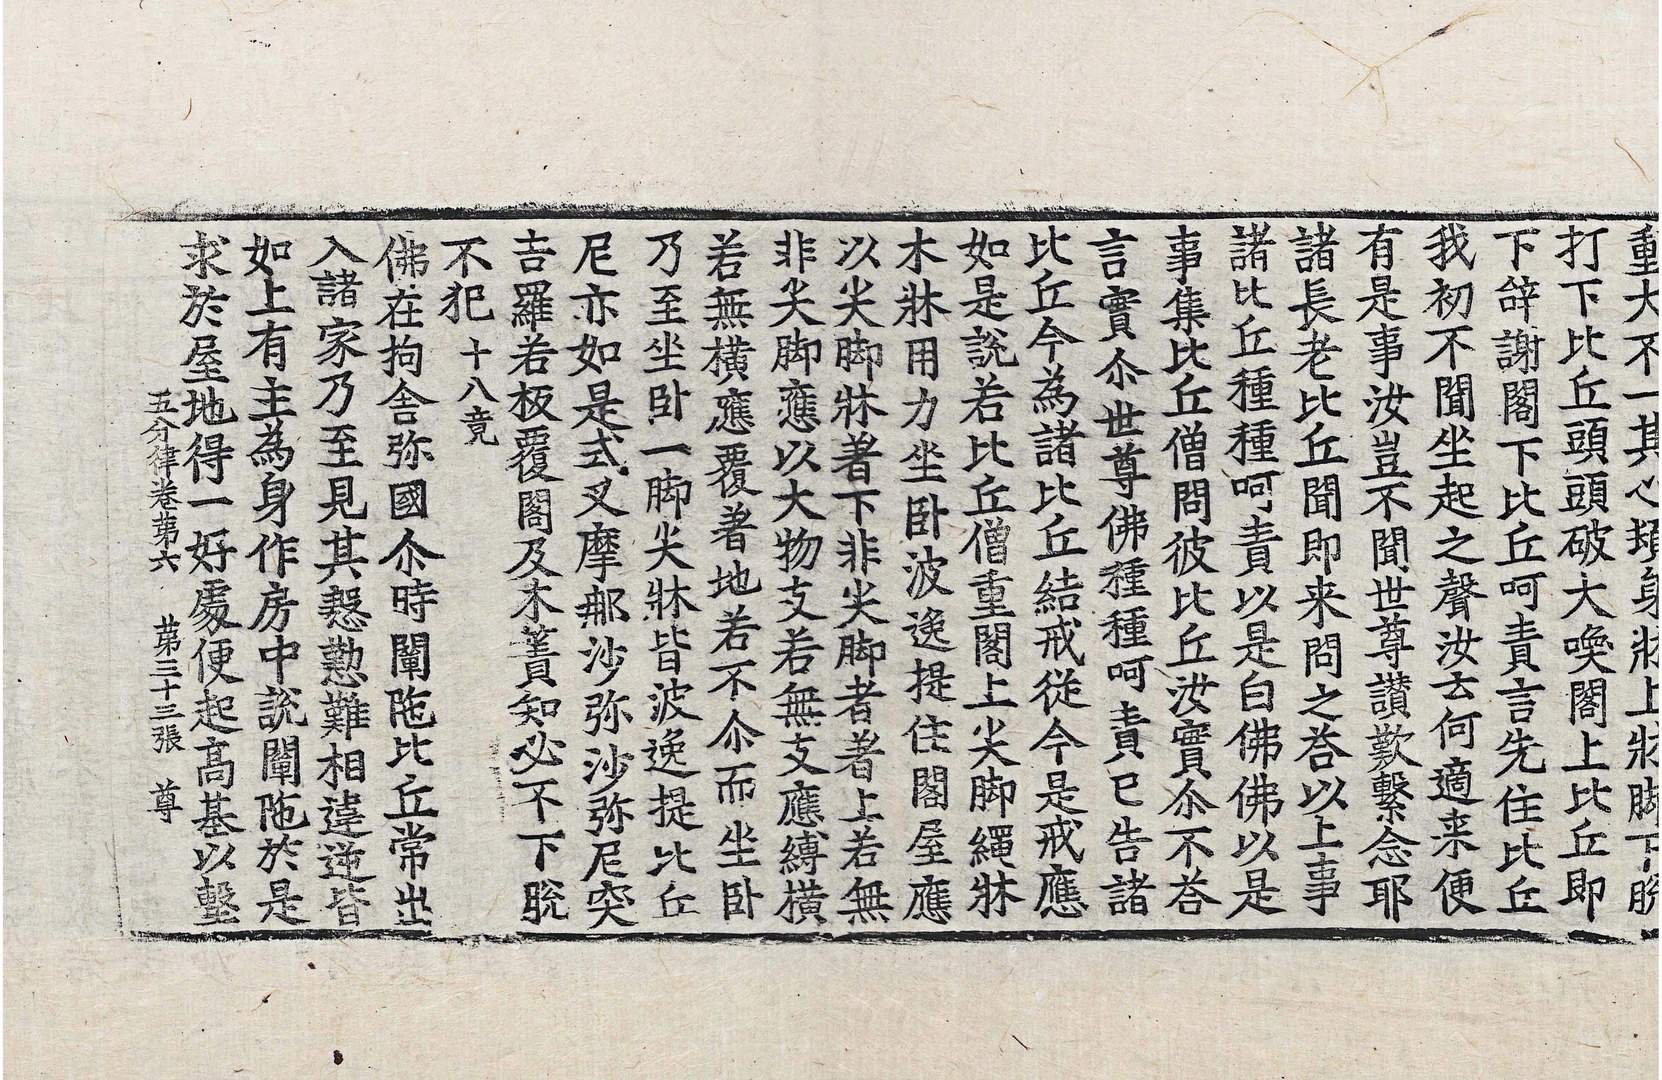 重大不一其心頓身牀上牀脚下脫
打下比丘頭頭破大喚閣上比丘即
下辝謝閣下比丘呵責言先住比丘
我初不聞坐起之聲汝云何適来便
有是事汝豈不聞世尊讃歎繫念耶
諸長老比丘聞即来問之荅以上事
諸比丘種種呵責以是白佛佛以是
事集比丘僧問彼比丘汝實尒不荅
言實尒世尊佛種種呵責已告諸
比丘今為諸比丘結戒從今是戒應
如是說若比丘僧重閣上尖脚繩牀
木牀用力坐卧波逸提住閣屋應
以尖脚牀著下非尖脚者著上若無
非尖脚應以大物支若無支應縛橫
若無橫應覆著地若不尒而坐卧
乃至坐卧一脚尖牀皆波逸提比丘
尼亦如是式叉摩那沙弥沙弥尼突
吉羅若板覆閣及木簀知必不下脫
不犯 十八竟
佛在拘舍弥國尒時闡陁比丘常出
入諸家乃至見其慇懃難相違逆皆
如上有主為身作房中說闡陁於是
求於屋地得一好處便起髙基以墼
五分律卷苐六 苐三十三張 尊